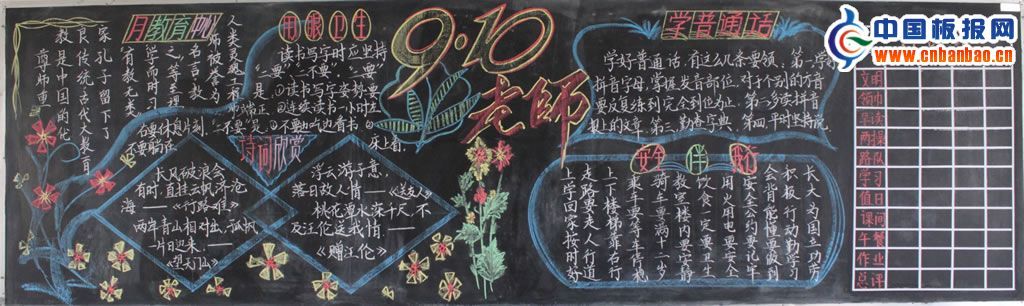 月教育
尊师重
教是中国的优
良传统古代大教育
家孔子留下了
"有教无类"
"学而时习
之"等至理
名言。教
师被誉为
人类灵魂
用眼卫生
读书写字时应坚持
"二要"、"二不要"。"二要"
是①读书写字姿势
要端正②连续读书一小时左
右要休息片刻。"二不
要"是①不要吃边看书②
不要躺在床上看。
诗词欣赏
长风破浪会
有时,直挂云帆济沧
海——《行路难》
两岸青山相对出,孤帆
一片日边来——
《望天门山》
浮云游子意,
落日故人情——《送友人》
桃花潭水深千尺,不
及汪伦送我情——
《赠汪伦》
9·10
老师
学普通话
学好普通话,有这么几条要领、第一学好
拼音字母,掌握发音部位。对于个别的方音
要反复练到完全到位为止。第二多读拼音
报上的文章、第三勤查字典、第四平时坚持说。
安全伴我行
上学回家按时好
走路要走人行道
上下楼梯靠右行
乘车要等车停稳
骑车要高十二岁
教室楼内要安静
饮食一定要卫生
用火用电要安全
安全公约要记牢
会背能懂要做到
积极行动勤学习
长大为国立功劳
文明
领巾
早读
两操
路队
学习
值日
课间
午餐
作业
点评
中国板报网
www.cnbanbao.cn